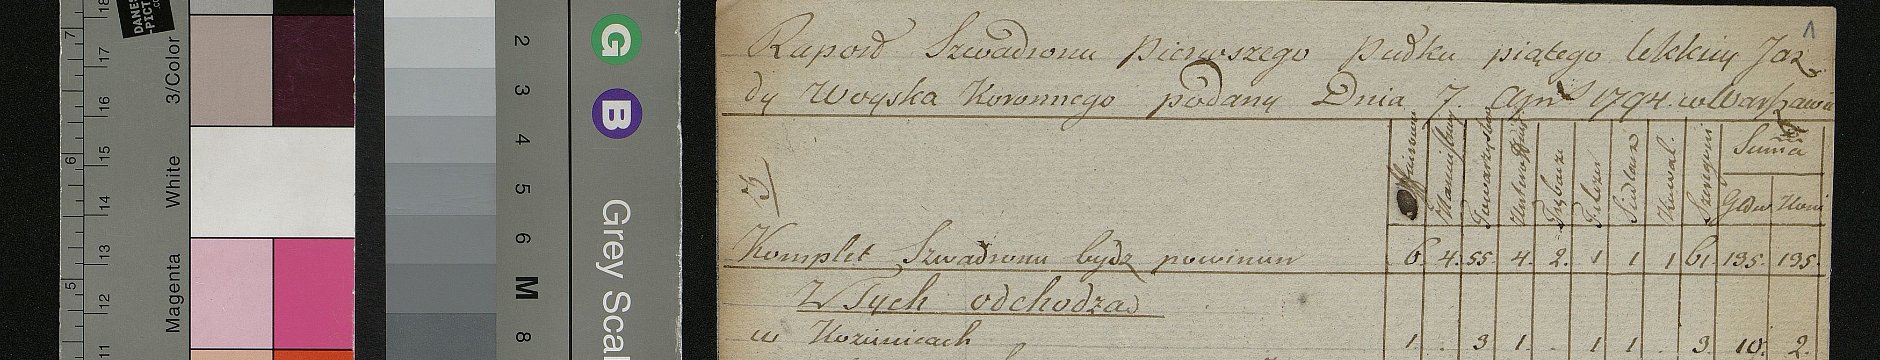 DANES
-PICT
.CO
3/Color
White
Magenta
18
17
16
15
14
13
12
11
7
6
5
2
3
4
5
6
M
8
G
B
Grey Scal
1
Raport Szwadronu Pierwszego Pułku piątego lekkiey Jaz
dy Woyska Koronnego podany Dnia 7. Apr 1794. w Warszawie
Towarzystwa
Trębacze
Felczer
Siodlarz
Kowal.
Szeregowi
Suma
Głów Koni
Komplet Szwadronu bydz powinien 6. 4. 55 4. 2. 1 1 1 61 135. 135.
Z Tych odchodzą
w Kozienicach 1. 3 1. 1 1. 3. 10. 2.